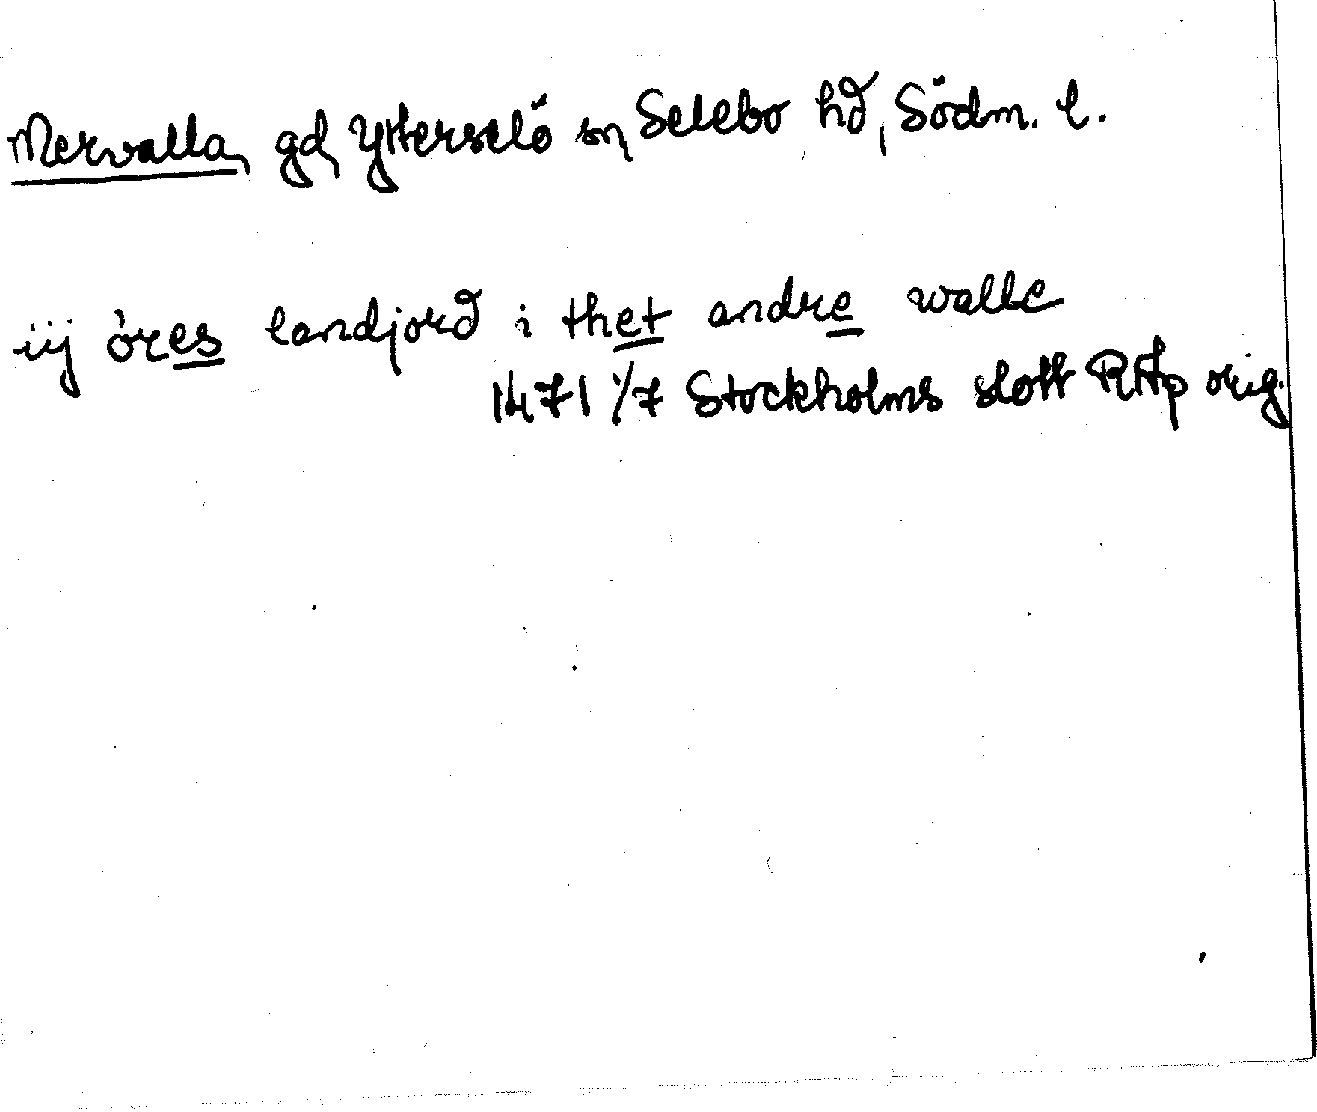 Mervalla, gd, Ytterselö sn, Selebo hd, Södm. l.
iij öres landjord i thet andre walle
1471 1/7 Stockholms slott RAp orig.